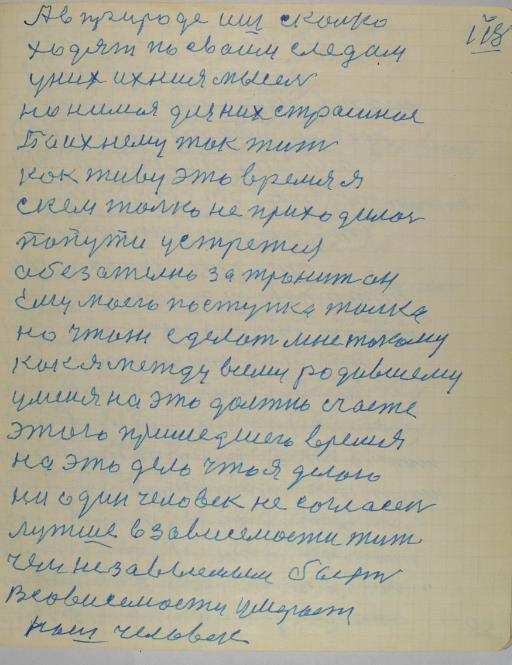 Ав природе иш сколко
ходят по своим следам
уних ихния мысел
но зимоя для них страшноя
Поихнему так жит
как живу это время я
скем толко не приходилос
попути устретея
обезателно затронит он
Ему моего поступка толка
но чтож сделат мне такому
как я между всеми родившему
уменя на это должно счасте
этого пришедшего время
на это дело что я делою
ни один человек не согласен
лутше взависемости жит
чем незавысемым быт
Всовисемости умерает
наш человек